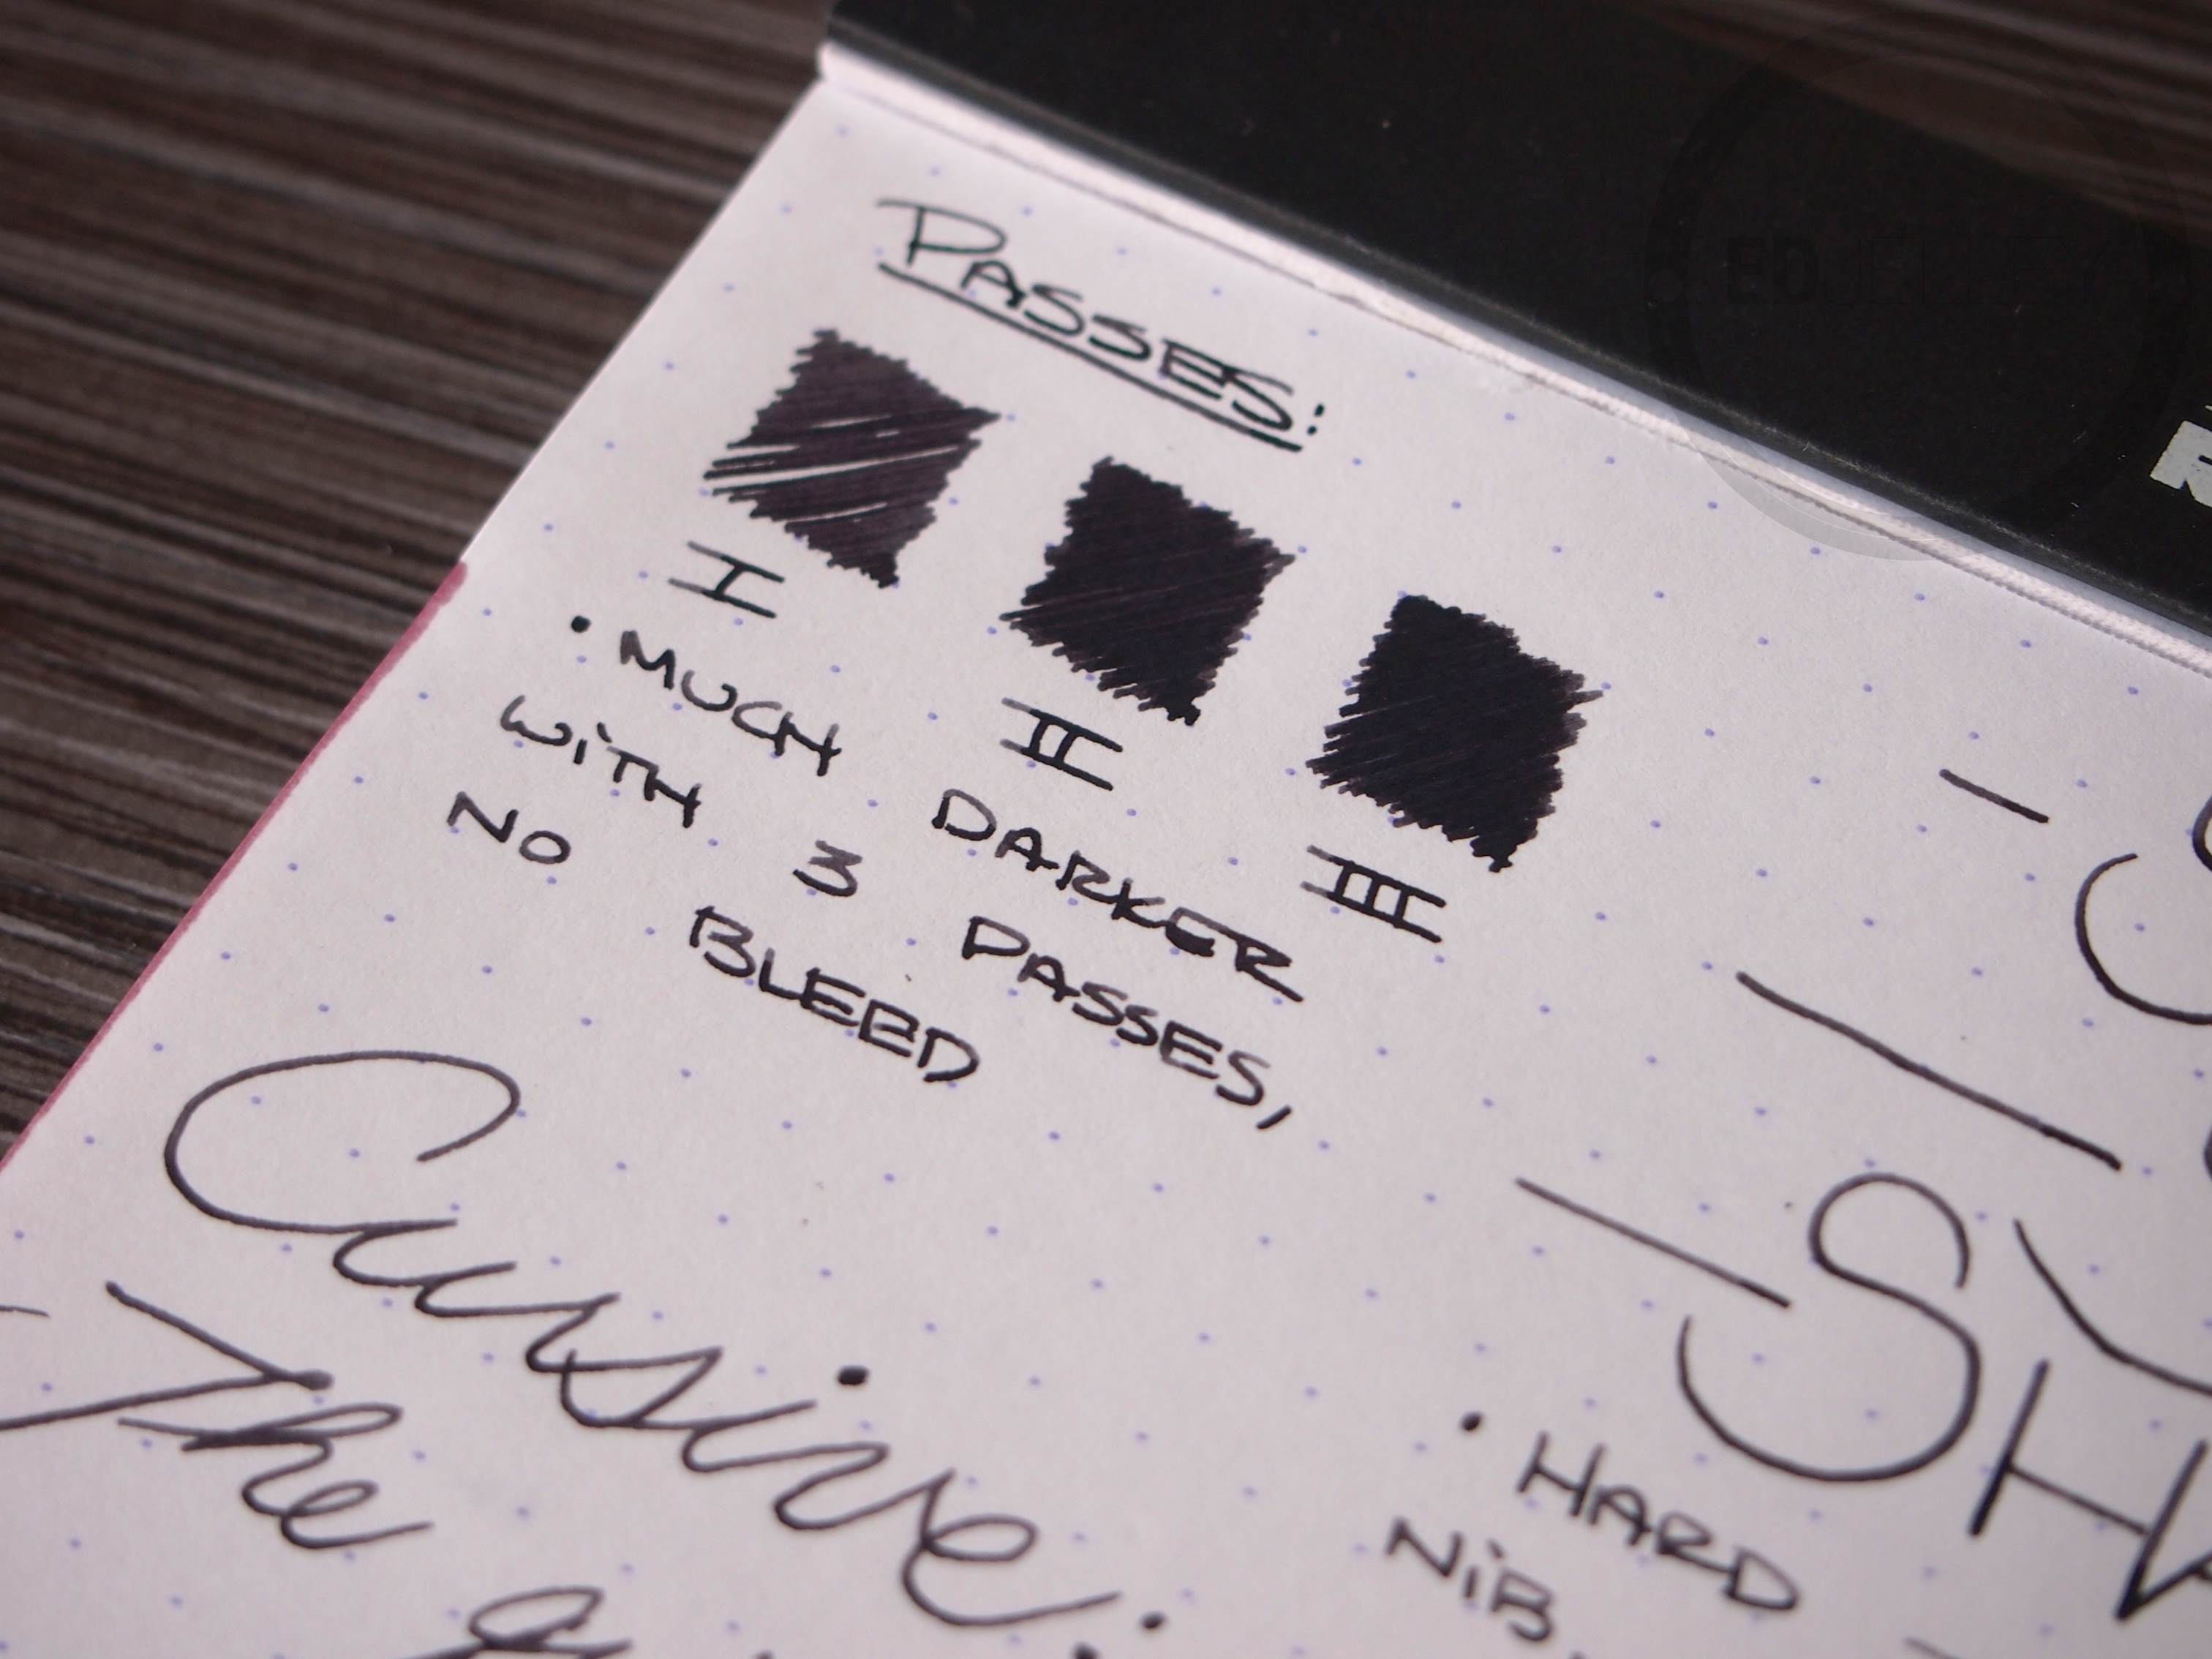 PASSES:
I
II
III
• MUCH DARKER
WITH 3 PASSES,
NO BLEED
Cursive:
The
• HARD
NIB
EDJELLEY